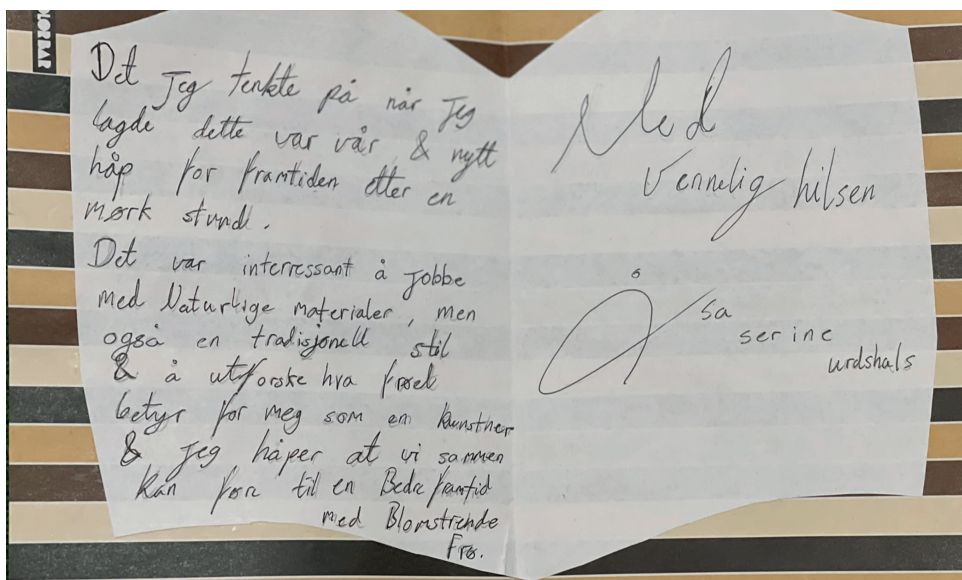 COLORBAR
Det jeg tenkte på når jeg
lagde dette var vår & nytt
håp for framtiden etter en
mørk stund.
Det var interressant å jobbe
med Naturlige materialer, men
også en tradisjonell stil
& å utforske hva frøet
betyr for meg som en kunstner
& jeg håper at vi sammen
kan for til en Bedre framtid
med Blomstrende
Frø.
Med
Vennelig hilsen
Åsa
serine
urdshals